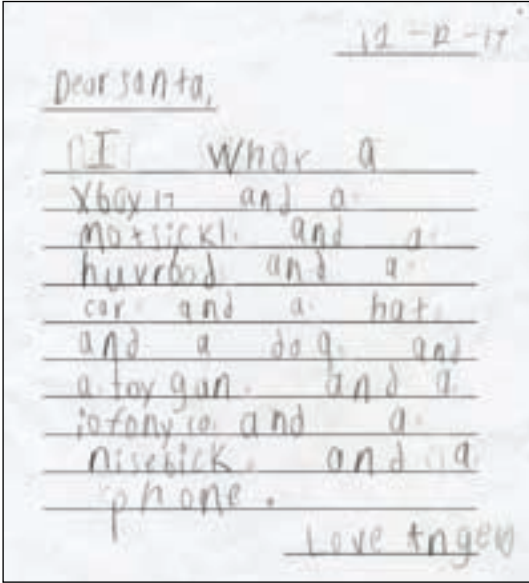 12-12-17
Dear santa,
I whar a
Xboy 17 and a
motsickl. and a
huvrbod and a
car and a hat
and a dog. and
a toy gun. and a
iofony 10. and a
nisebick. and a
phone.
Love Angelo